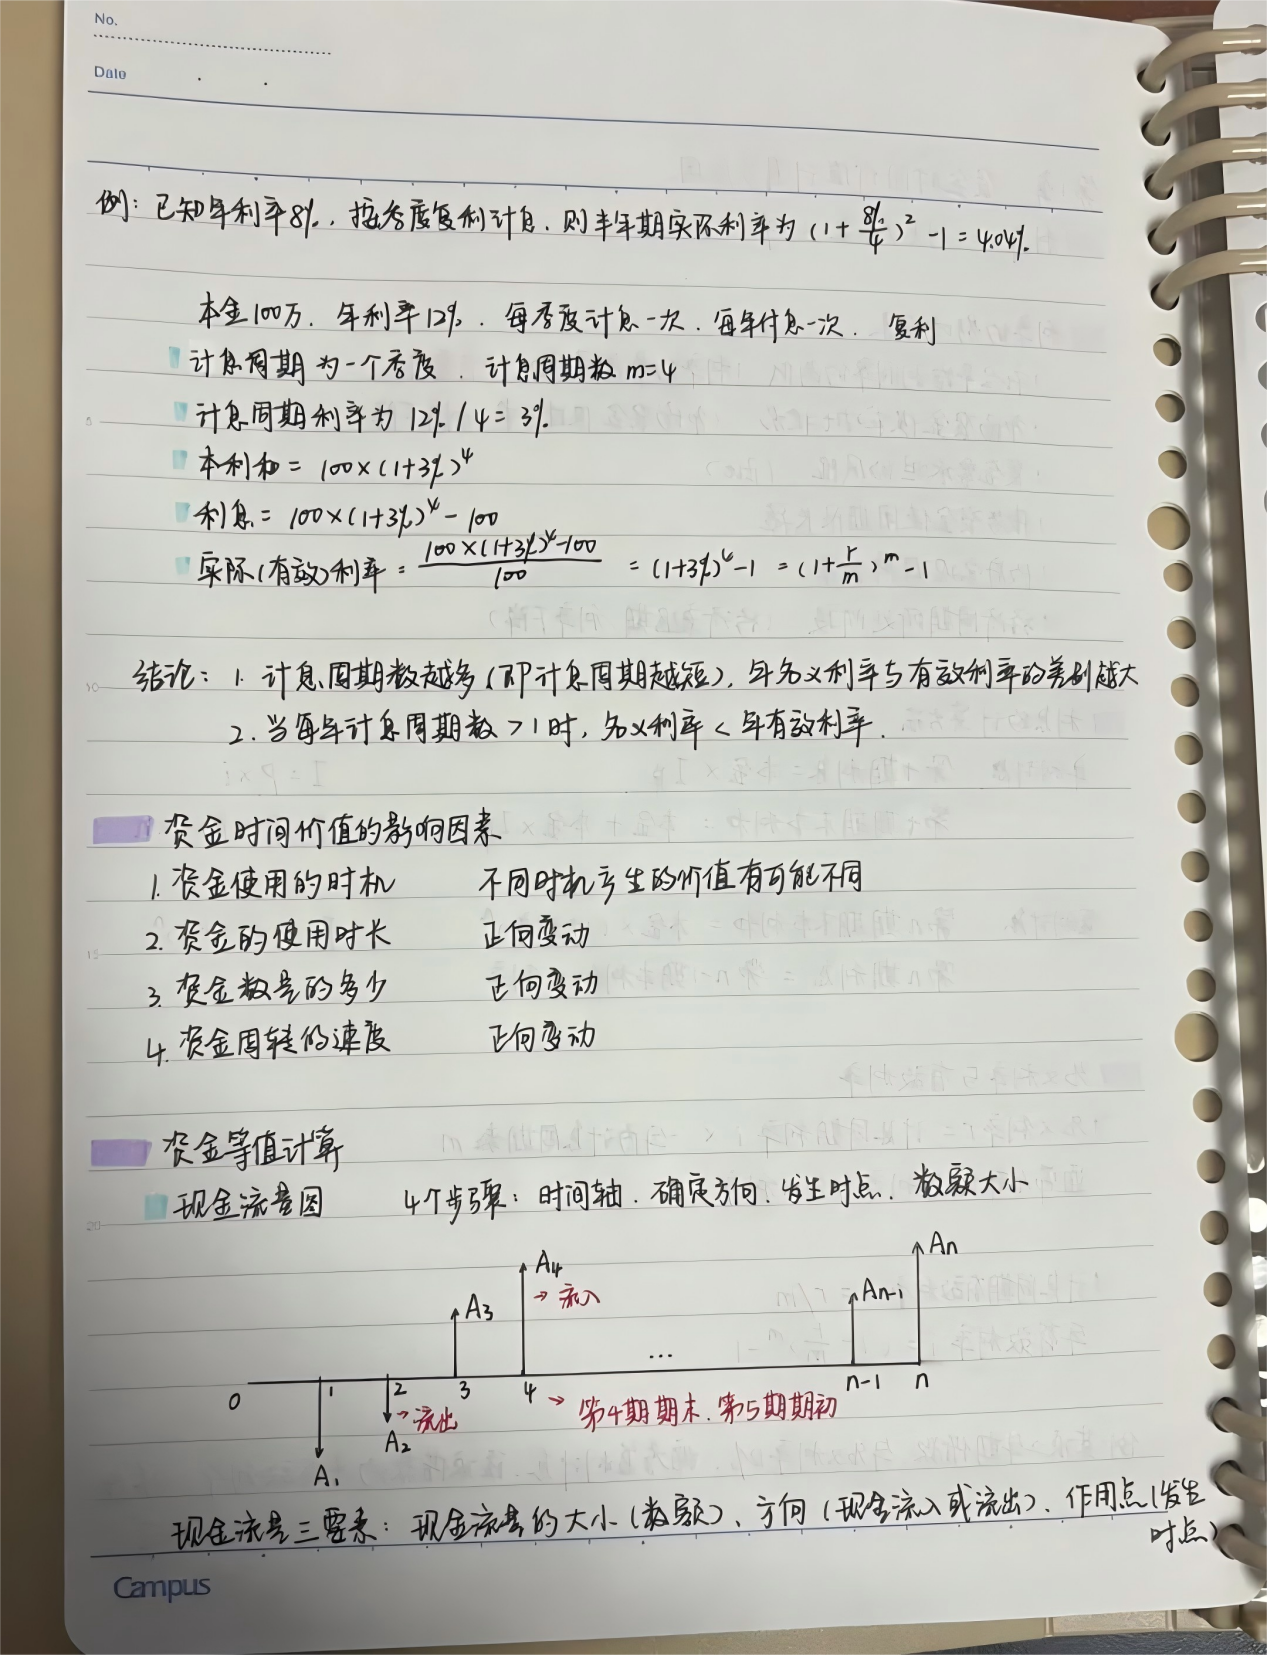 No.
Date
例：已知年利率8%，按季度复利计息，则半年期实际利率为 (1+8%/4)² -1 = 4.04%.
本金100万，年利率12%，每季度计息一次，每年付息一次，复利
计息周期为一个季度，计息周期数m=4
计息周期利率为 12%/4=3%
本利和= 100×(1+3%)⁴
利息= 100×(1+3%)⁴-100
实际(有效)利率= (100×(1+3%)⁴-100)/100 = (1+3%)⁴-1 = (1+r/m)^m -1
结论：1. 计息周期数越多(即计息周期越短)，年名义利率与有效利率的差别越大
2. 当每年计息周期数>1时，名义利率<年有效利率.
资金时间价值的影响因素
1. 资金使用的时机 不同时机产生的价值有可能不同
2. 资金的使用时长 正向变动
3. 资金数量的多少 正向变动
4. 资金周转的速度 正向变动
资金等值计算
现金流量图 4个步骤：时间轴、确定方向、发生时点、数额大小
An
A4
→ 流入
An-1
A3
...
0 1 2 3 4 n-1 n
→ 流出
→ 第4期期末、第5期期初
A2
A1
现金流量三要素：现金流量的大小(数额)、方向(现金流入或流出)、作用点(发生
时点)
Campus